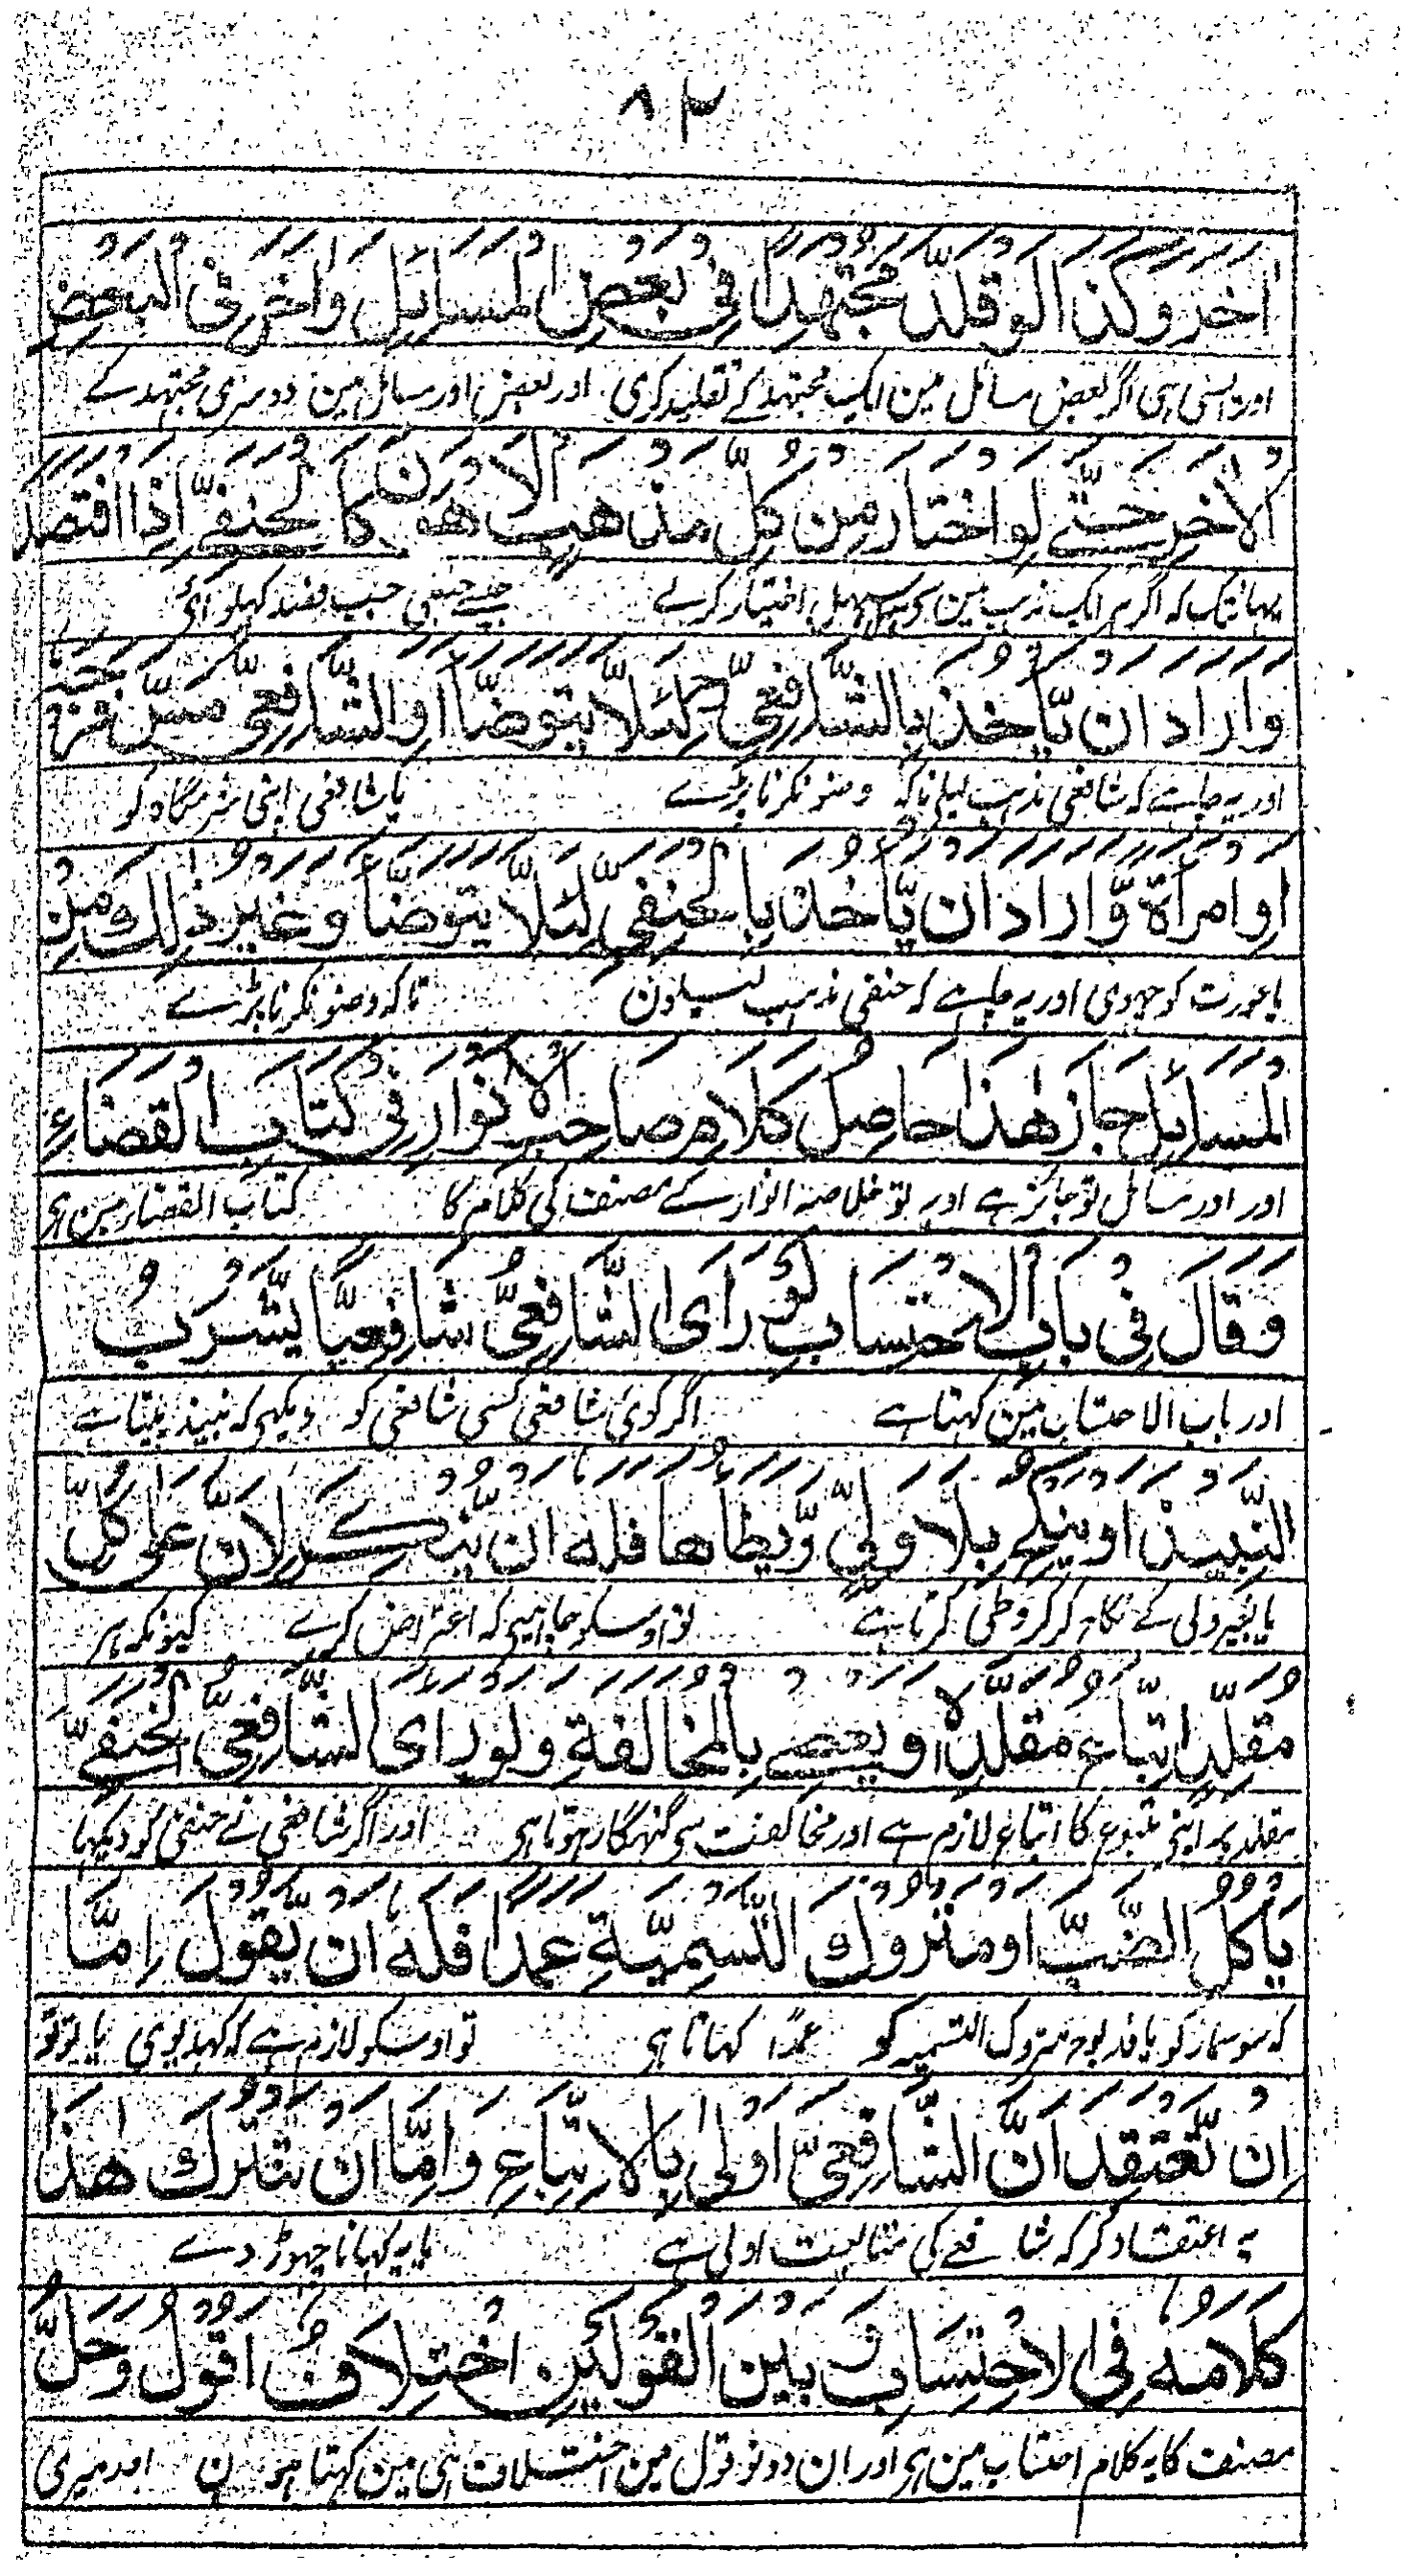 ٨٢
اٰخَرَ وَكَذَا لَوْ قَلَّدَ مُجْتَهِدًا فِي بَعْضِ الْمَسَائِلِ وَاٰخَرَ فِي الْبَعْضِ
اور ایسی ہی اگر بعض مسائل مین ایک مجتہد کے تقلید کری اور بعض اور مسائل مین دوسری مجتہد کے
الْاٰخَرِ حَتّٰی لَوِ اخْتَارَ مِنْ كُلِّ مَذْهَبٍ الْاَهْوَنَ كَالْحَنَفِيِّ اِذَا افْتَصَدَ
یہانتک کہ اگر ہر ایک مذہب مین سہل اختیار کرلے جیسے حنفی جب فصد کہلوائی
وَاَرَادَ اَنْ يَّاْخُذَ بِالشَّافِعِيِّ لِئَلَّا يَتَوَضَّاَ اَوِ الشَّافِعِيِّ مَسَّ فَرْجَهٗ
اور یہ چاہے کہ شافعی مذہب لیلے تاکہ وضو نکرنا پڑے یا شافعی اپنی شرمگاہ کو
اَوِ امْرَاَةً وَّاَرَادَ اَنْ يَّاْخُذَ بِالْحَنَفِيِّ لِئَلَّا يَتَوَضَّاَ وَغَيْرِ ذٰلِكَ مِنَ
یا عورت کو چہووی اور یہ چاہے کہ حنفی مذہب لیلون تاکہ وضو نکرنا پڑے
الْمَسَائِلِ جَازَ هٰذَا حَاصِلُ كَلَامِ صَاحِبِ الْاَنْوَارِ فِي كِتَابِ الْقَضَاءِ
اور اور مسائل تو جائز ہے اور یہ تو خلاصہ انوار کے مصنف کی کلام کا کتاب القضاء مین ہی
وَقَالَ فِي بَابِ الْاِحْتِسَابِ لَوْ رَاَی الشَّافِعِيُّ شَافِعِيًّا يَّشْرَبُ
اور باب الاحتساب مین کہتا ہے اگر کوئی شافعی کسی شافعی کو دیکہی کہ نبیذ پیتا ہے
النَّبِيْذَ اَوْ يَنْكِحُ بِلَا وَلِيٍّ وَّيَطَاُهَا فَلَهٗ اَنْ يُّنْكِرَ لِاَنَّ عَلٰی كُلِّ
یا بغیر ولی کے نکاح کرکر وطی کرتا ہے تو اوسکو چاہیی کہ اعتراض کرے کیونکہ ہر
مُقَلِّدٍ اتِّبَاعَ مُقَلَّدِهٖ وَيَعْصِي بِالْمُخَالَفَةِ وَلَوْ رَاَی الشَّافِعِيُّ الْحَنَفِيَّ
مقلد پر اپنی متبوع کا اتباع لازم ہے اور مخالفت سی گنہگار ہوتا ہی اور اگر شافعی نے حنفی کو دیکہا
يَاْكُلُ الضَّبَّ اَوْ مَتْرُوْكَ التَّسْمِيَّةِ عَمْدًا فَلَهٗ اَنْ يَّقُوْلَ اِمَّا
کہ سوسمار کو یا مذبوح متروک التسمیہ کو عمدًا کہاتا ہی تو اوسکو لازم ہے کہ کہدیوی یا تو تو
اَنْ تَّعْتَقِدَ اَنَّ الشَّافِعِيَّ اَوْلٰی بِالْاِتِّبَاعِ وَاِمَّا اَنْ تَتْرُكَ هٰذَا
یہ اعتقاد کر کہ شافعے کی متابعت اولی ہے یا یہ کہانا چہوڑ دے
كَلَامُهٗ فِي الْاِحْتِسَابِ وَبَيْنَ الْقَوْلَيْنِ اخْتِلَافٌ اَقُوْلُ وَحَلُّ
مصنف کا یہ کلام احتساب مین ہی اور ان دونو قول مین اختلاف ہی مین کہتا ہون اور میری